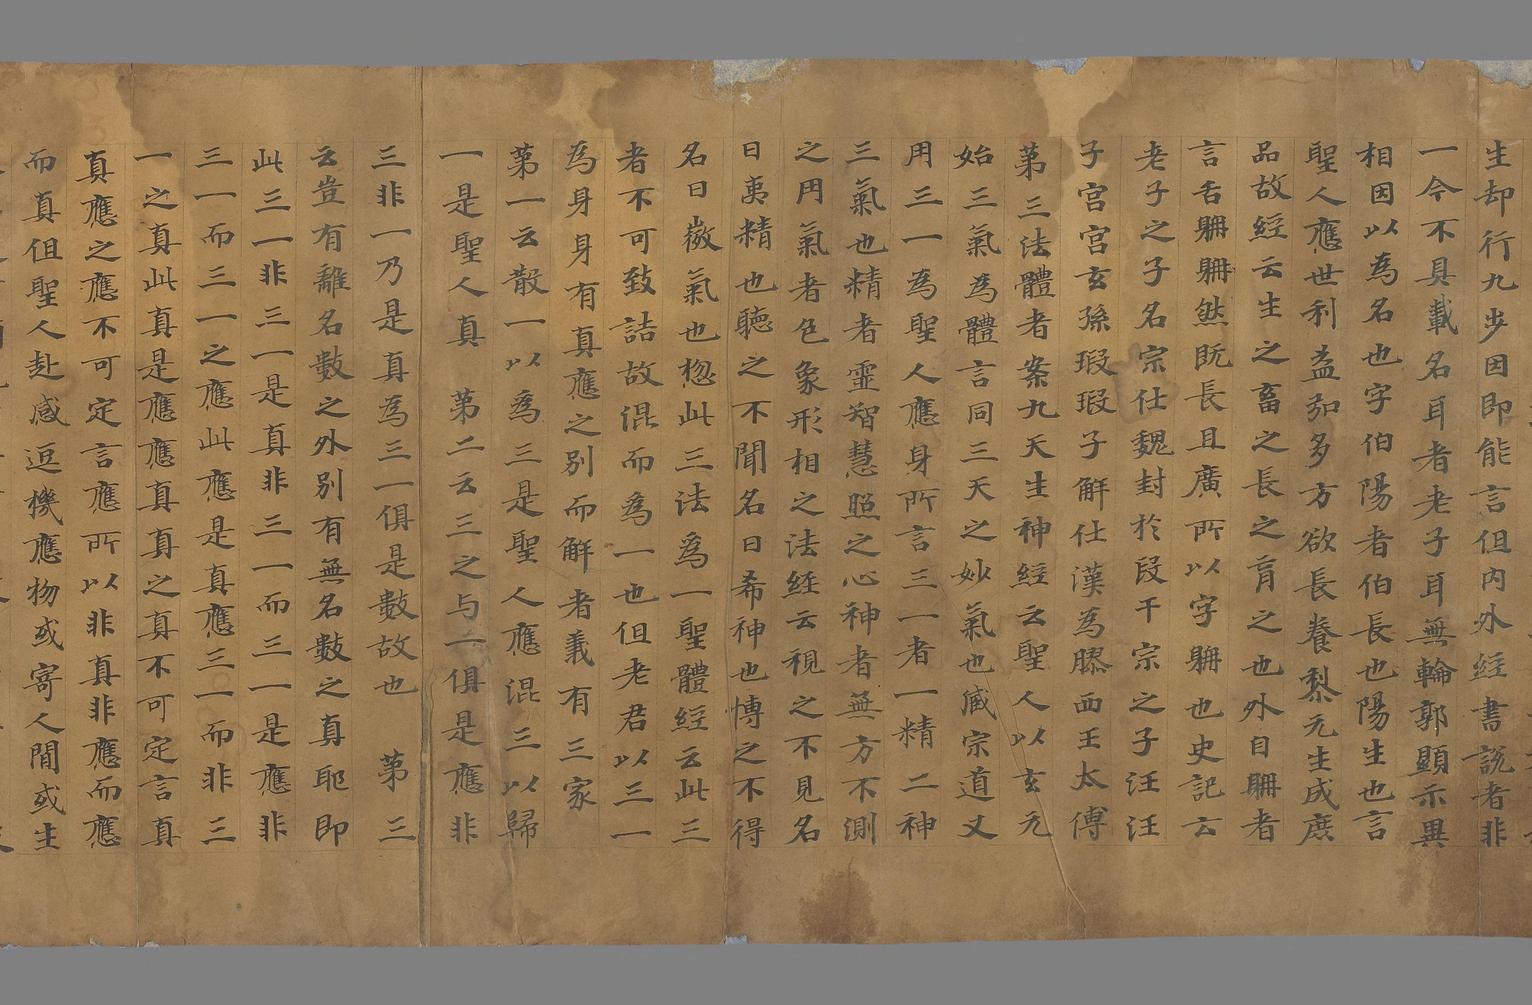 生却行九步因即能言但內外經書說者非
一今不具載名耳者老子耳無輪郭顯示異
相因以為名也字伯陽者伯長也陽生也言
聖人應世利益弘多方欲長養黎元生成庶
品故經云生之畜之長之育之也外自聃者
言舌聃聃然既長且廣所以字聃也史記云
老子之子名宗仕魏封於段干宗之子汪汪
子宮宮玄孫瑕瑕子解仕漢為膠西王太傅
第三法體者案九天生神經云聖人以玄元
始三氣為體言同三天之妙氣也臧宗道又
用三一為聖人應身所言三一者一精二神
三氣也精者靈智慧照之心神者無方不測
之用氣者色象形相之法經云視之不見名
曰夷精也聽之不聞名曰希神也慱之不得
名曰微氣也惣此三法為一聖體經云此三
者不可致詰故混而為一也但老君以三一
為身身有真應之別而解者義有三家
第一云散一以為三是聖人應混三以歸
一是聖人真 第二云三之与一俱是應非
三非一乃是真為三一俱是數故也 第三
云豈有離名數之外別有無名數之真耶即
此三一非三一是真非三一而三一是應非
三一而三一之應此應是真應三一而非三
一之真此真是應應真真之真不可定言真
真應之應不可定言應所以非真非應而應
而真但聖人赴感逗機應物或寄人間或生